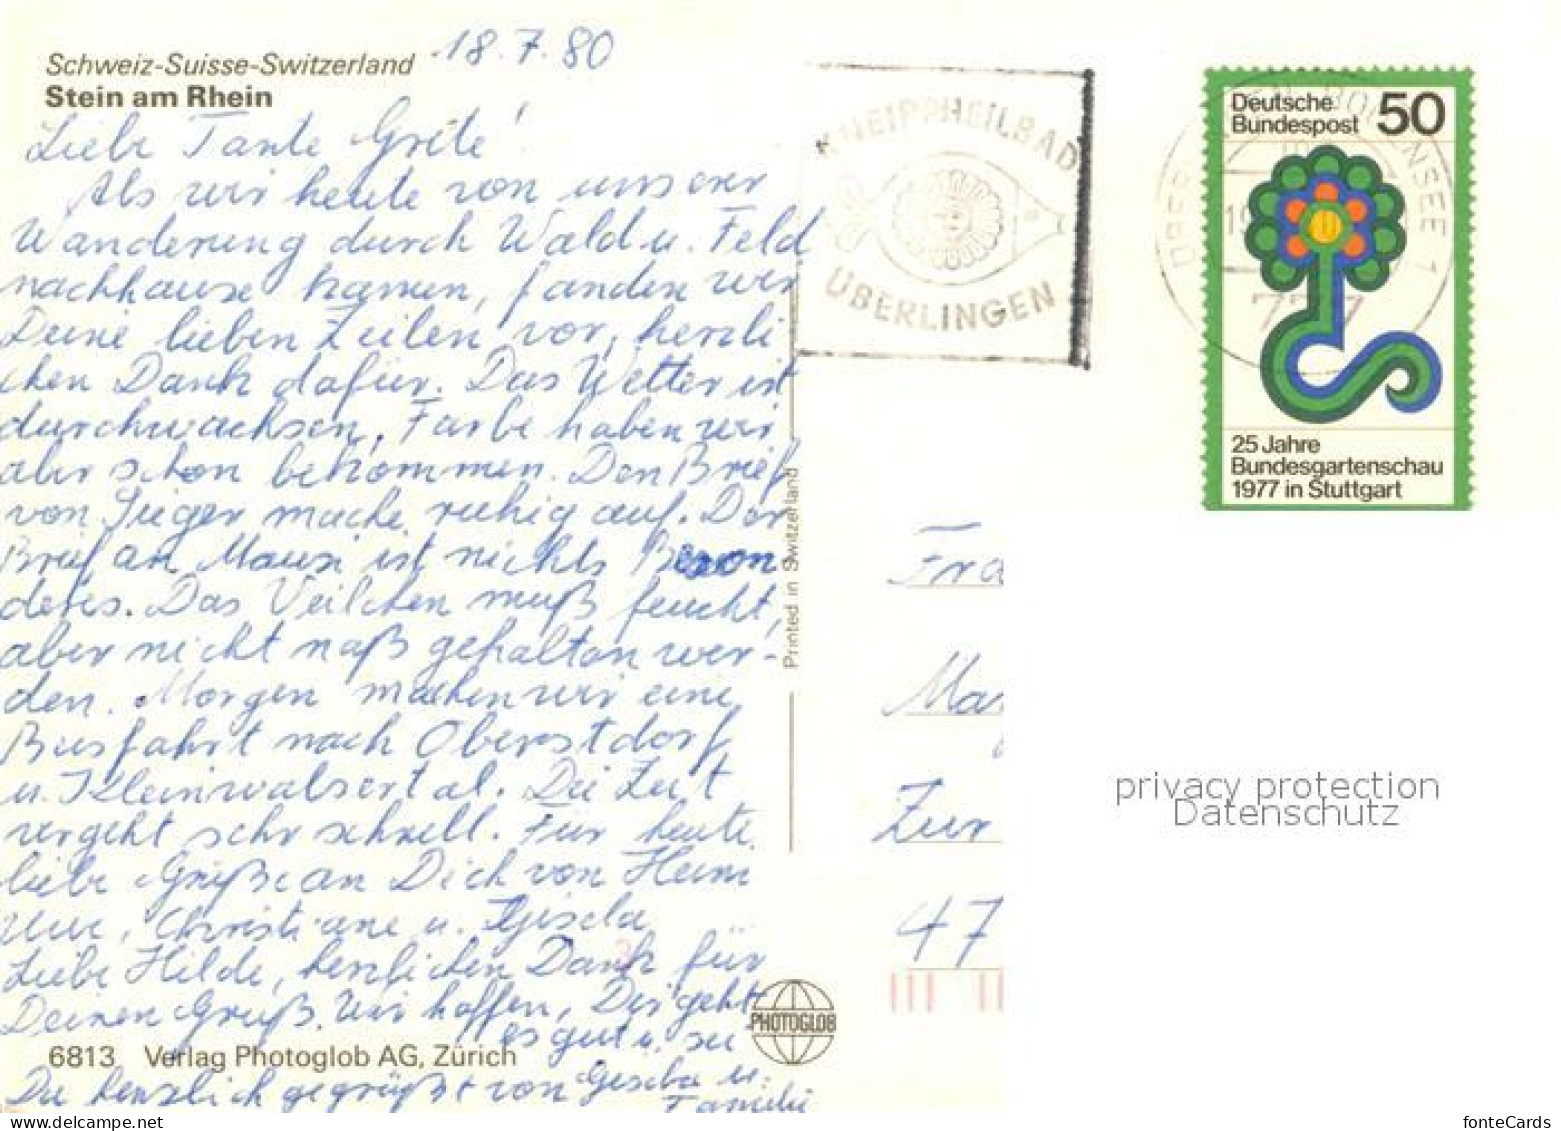 18.7.80
Schweiz-Suisse-Switzerland
Stein am Rhein
Liebe Tante Grete!
Als wir heute von unserer
Wanderung durch Wald u. Feld
nachhause kamen, fanden wir
Deine lieben Zeilen vor, herzli
chen Dank dafür. Das Wetter ist
durchwachsen, Farbe haben wir
aber schon bekommen. Den Brief
von Sieger mache ruhig auf. Der
Brief an Mausi ist nichts Beson
deres. Das Veilchen muß feucht,
aber nicht naß gehalten wer-
den. Morgen machen wir eine
Busfahrt nach Oberstdorf
u. Kleinwalsertal. Die Zeit
vergeht sehr schnell. Für heute
liebe Grüße an Dich von Heim
Uwe, Christiane u. Gisela
Liebe Hilde, herzlichen Dank für
Deinen Gruß. Wir hoffen, Dir geht
es gut u. sei
6813 Verlag Photoglob AG, Zürich
Du herzlich gegrüßt von Gisela u.
Familie
Printed in Switzerland
PHOTOGLOB
KNEIPPHEILBAD
ÜBERLINGEN
ÜBERLINGEN, BODENSEE 1
Deutsche
Bundespost 50
25 Jahre
Bundesgartenschau
1977 in Stuttgart
Fra
Mar
Zur
47
privacy protection
Datenschutz
fonteCards